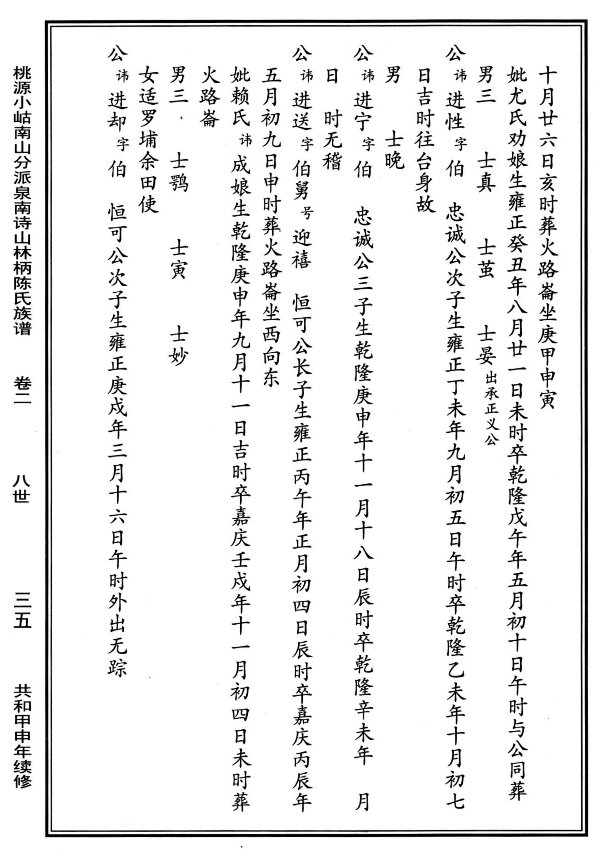 十月廿六日亥时葬火路崙坐庚甲申寅
妣尤氏劝娘生雍正癸丑年八月廿一日未时卒乾隆戊午年五月初十日午时与公同葬
男三 士真 士茧 士晏 出承正义公
公 讳 进性 字 伯 忠诚公次子生雍正丁未年九月初五日午时卒乾隆乙未年十月初七
日吉时往台身故
男 士晚
公 讳 进宁 字 伯 忠诚公三子生乾隆庚申年十一月十八日辰时卒乾隆辛未年 月
日 时无稽
公 讳 进送 字 伯舅 号 迎禧 恒可公长子生雍正丙午年正月初四日辰时卒嘉庆丙辰年
五月初九日申时葬火路崙坐西向东
妣赖氏 讳 成娘生乾隆庚申年九月十一日吉时卒嘉庆壬戌年十一月初四日未时葬
火路崙
男三 士鹗 士寅 士妙
女适罗埔余田使
公 讳 进却 字 伯 恒可公次子生雍正庚戌年三月十六日午时外出无踪
桃源小岵南山分派泉南诗山林柄陈氏族谱 卷二 八世 三五 共和甲申年续修